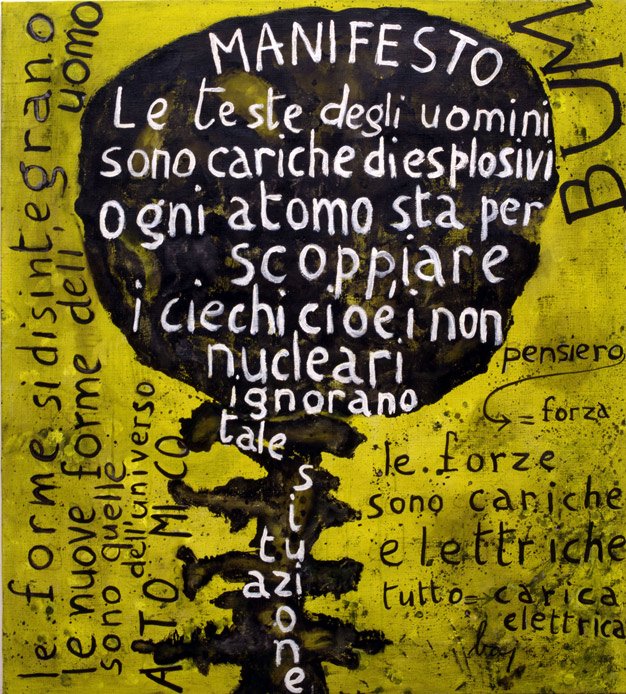 MANIFESTO
Le teste degli uomini
sono cariche di esplosivi
ogni atomo sta per
scoppiare
i ciechi cioè i non
nucleari
ignorano
tale
situazione
BUM
pensiero
= forza
le forze
sono cariche
elettriche
tutto = carica
elettrica
baj
le forme si disintegrano
le nuove forme dell'uomo
sono quelle
dell'universo
ATOMICO